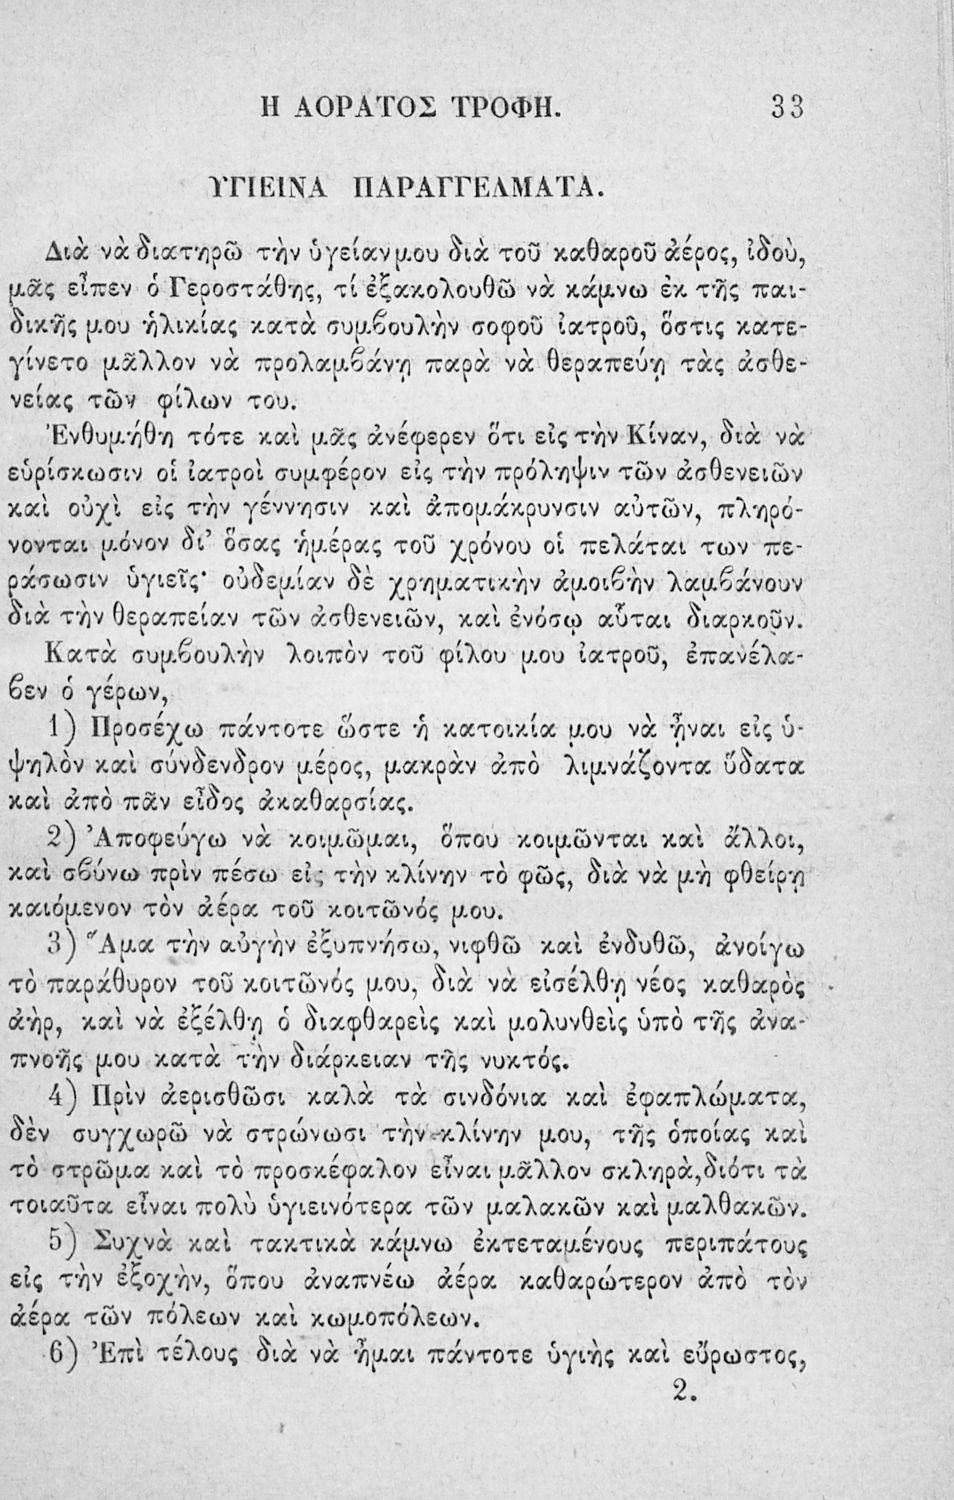 Η ΑΟΡΑΤΟΣ ΤΡΟΦΗ. 33
ΥΓΙΕΙΝΑ ΠΑΡΑΓΓΕΛΜΑΤΑ.
Διὰ νὰ διατηρῶ τὴν ὑγείαν μου διὰ τοῦ καθαροῦ ἀέρος, ἰδοὺ,
μᾶς εἶπεν ὁ Γεροστάθης, τί ἐξακολουθῶ νὰ κάμνω ἐκ τῆς παι-
δικῆς μου ἡλικίας κατὰ συμβουλὴν σοφοῦ ἰατροῦ, ὅστις κατε-
γίνετο μᾶλλον νὰ προλαμβάνῃ παρὰ νὰ θεραπεύῃ τὰς ἀσθε-
νείας τῶν φίλων του.
Ἐνθυμήθη τότε καὶ μᾶς ἀνέφερεν ὅτι εἰς τὴν Κίναν, διὰ νὰ
εὑρίσκωσιν οἱ ἰατροὶ συμφέρον εἰς τὴν πρόληψιν τῶν ἀσθενειῶν
καὶ οὐχὶ εἰς τὴν γέννησιν καὶ ἀπομάκρυνσιν αὐτῶν, πληρό-
νονται μόνον δι’ ὅσας ἡμέρας τοῦ χρόνου οἱ πελάται των πε-
ράσωσιν ὑγιεῖς· οὐδεμίαν δὲ χρηματικὴν ἀμοιβὴν λαμβάνουν
διὰ τὴν θεραπείαν τῶν ἀσθενειῶν, καὶ ἐνόσῳ αὗται διαρκοῦν.
Κατὰ συμβουλὴν λοιπὸν τοῦ φίλου μου ἰατροῦ, ἐπανέλα-
βεν ὁ γέρων,
1) Προσέχω πάντοτε ὥστε ἡ κατοικία μου νὰ ᾖναι εἰς ὑ-
ψηλὸν καὶ σύνδενδρον μέρος, μακρὰν ἀπὸ λιμνάζοντα ὕδατα
καὶ ἀπὸ πᾶν εἶδος ἀκαθαρσίας.
2) Ἀποφεύγω νὰ κοιμῶμαι, ὅπου κοιμῶνται καὶ ἄλλοι,
καὶ σβύνω πρὶν πέσω εἰς τὴν κλίνην τὸ φῶς, διὰ νὰ μὴ φθείρῃ
καιόμενον τὸν ἀέρα τοῦ κοιτῶνός μου.
3) Ἅμα τὴν αὐγὴν ἐξυπνήσω, νιφθῶ καὶ ἐνδυθῶ, ἀνοίγω
τὸ παράθυρον τοῦ κοιτῶνός μου, διὰ νὰ εἰσέλθῃ νέος καθαρὸς
ἀὴρ, καὶ νὰ ἐξέλθῃ ὁ διαφθαρεὶς καὶ μολυνθεὶς ὑπὸ τῆς ἀνα-
πνοῆς μου κατὰ τὴν διάρκειαν τῆς νυκτός.
4) Πρὶν ἀερισθῶσι καλὰ τὰ σινδόνια καὶ ἐφαπλώματα,
δὲν συγχωρῶ νὰ στρώνωσι τὴν κλίνην μου, τῆς ὁποίας καὶ
τὸ στρῶμα καὶ τὸ προσκέφαλον εἶναι μᾶλλον σκληρὰ, διότι τὰ
τοιαῦτα εἶναι πολὺ ὑγιεινότερα τῶν μαλακῶν καὶ μαλθακῶν.
5) Συχνὰ καὶ τακτικὰ κάμνω ἐκτεταμένους περιπάτους
εἰς τὴν ἐξοχὴν, ὅπου ἀναπνέω ἀέρα καθαρώτερον ἀπὸ τὸν
ἀέρα τῶν πόλεων καὶ κωμοπόλεων.
6) Ἐπὶ τέλους διὰ νὰ ἦμαι πάντοτε ὑγιὴς καὶ εὔρωστος,
2.